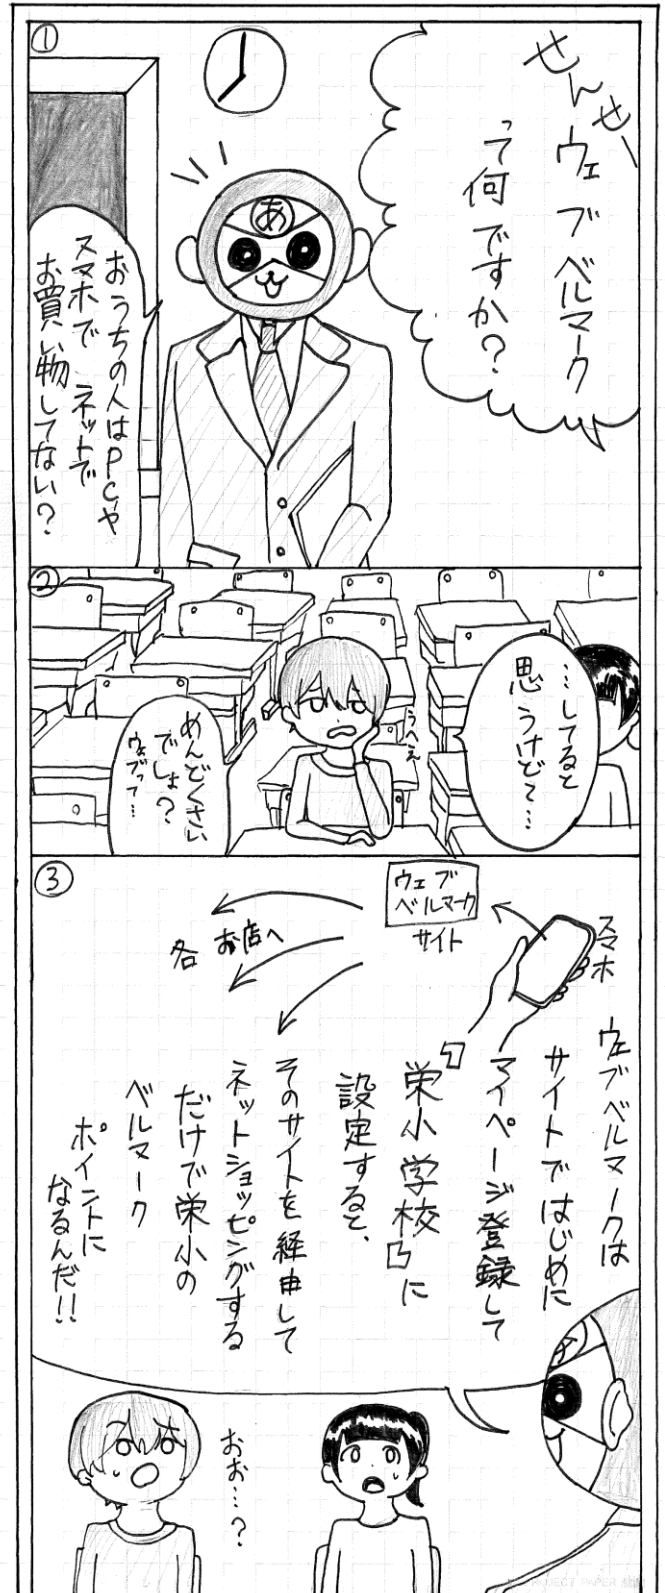 ①
せんせー
ウェブベルマーク
って何ですか?
あ
おうちの人はPCや
スマホで ネットで
お買い物してない?
②
…してると
思うけどて…
うへえ
めんどくさい
でしょ?
ウェブって…
③
スマホ
ウェブ
ベルマーク
サイト
各 お店へ
ウェブベルマークは
サイトではじめに
マイページ登録して
「栄小学校」に
設定すると、
そのサイトを経由して
ネットショッピングする
だけで栄小の
ベルマーク
ポイントに
なるんだ!!
おお…?